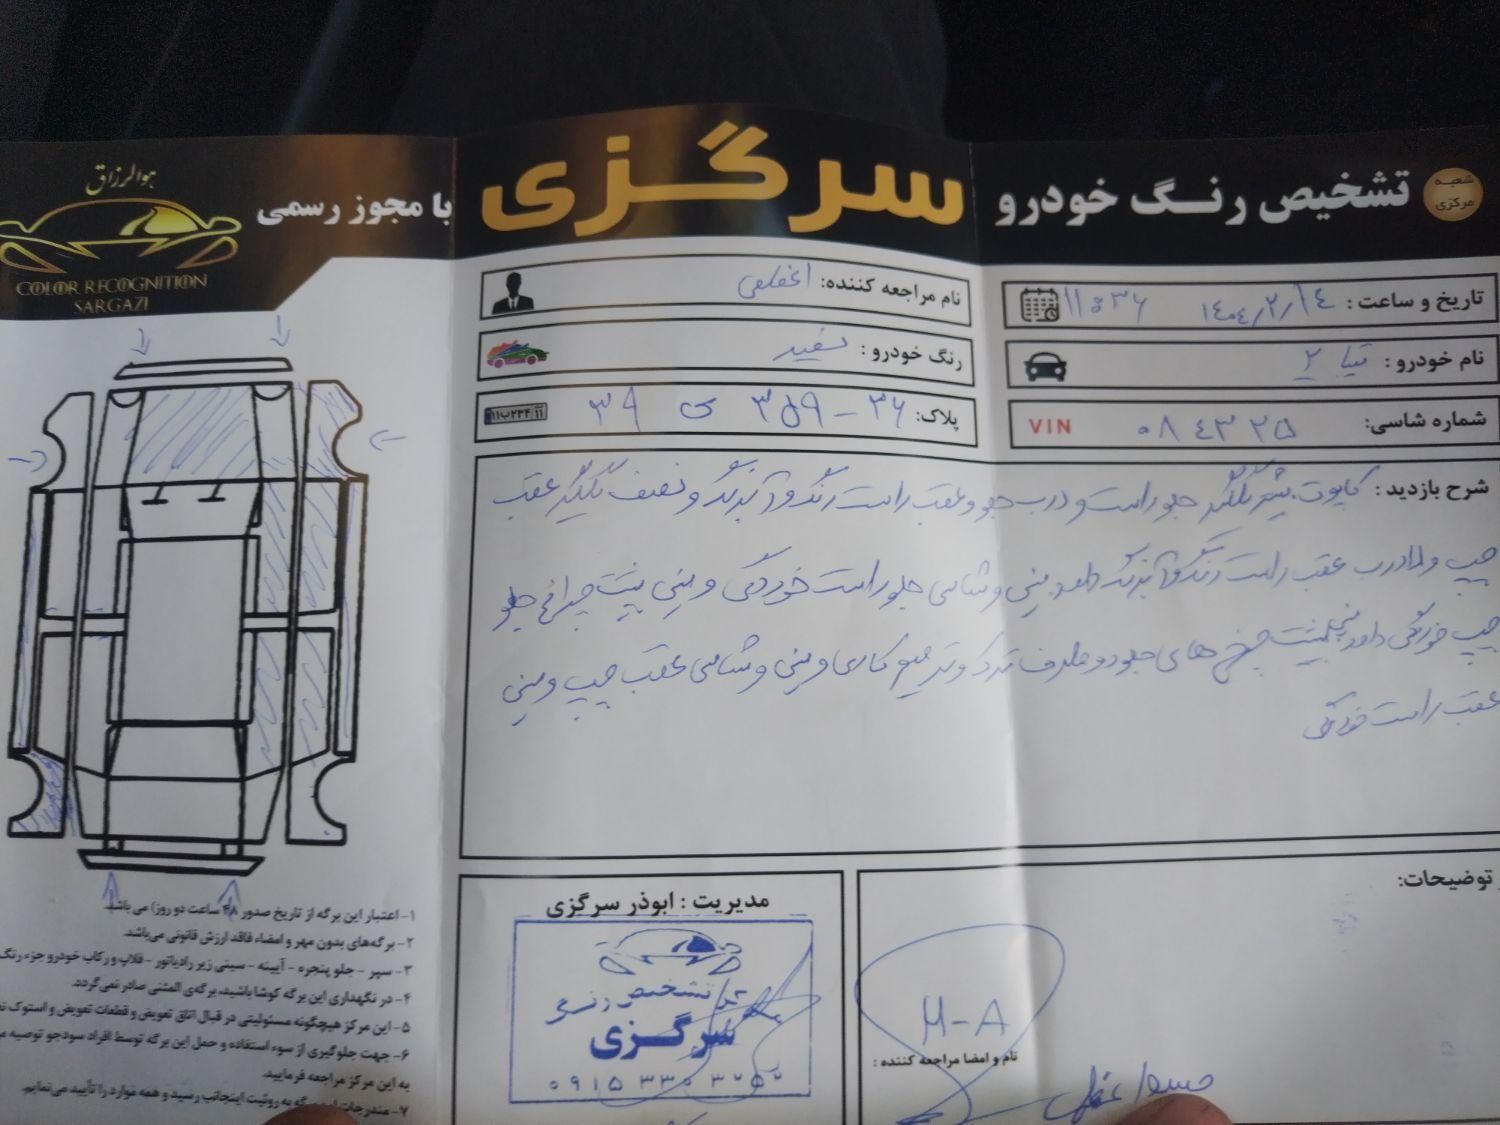 شعبه مرکزی
تشخیص رنگ خودرو
سرگزی
با مجوز رسمی
هوالرزاق
COLOR RECOGNITION
SARGAZI
تاریخ و ساعت : ۱۴۰۴/۲/۱۴ ۱۱:۳۶
نام مراجعه کننده:
نام خودرو : تیبا ۲
رنگ خودرو : سفید
شماره شاسی: ۰۸۴۳۲۵ VIN
پلاک: ۳۶ - ۳۵۹ ی ۳۹
شرح بازدید : کاپوت، بیشتر گلگیر جلو راست و درب جلو و عقب راست رنگ و آبرنگ و نصف گلگیر عقب
چپ و لادرب عقب راست رنگ و آبرنگ دارد. سینی و شاسی جلو راست خوردگی و سینی پشت چراغ جلو
چپ خوردگی دارد. پشت چرخ های جلو دو طرف ترک و ترمیم کاری و سینی و شاسی عقب چپ و سینی
عقب راست خوردگی
توضیحات:
M-A
نام و امضا مراجعه کننده :
مدیریت : ابوذر سرگزی
تشخیص رنگ
سرگزی
۱- اعتبار این برگه از تاریخ صدور ۴۸ ساعت (دو روز) می باشد.
۲- برگه‌های بدون مهر و امضاء فاقد ارزش قانونی می‌باشد.
۳- سپر - جلو پنجره - آیینه - سینی زیر رادیاتور - قلاپ و رکاب خودرو جزء رنگ
۴- در نگهداری این برگه کوشا باشید، برگه‌ی المثنی صادر نمی‌گردد.
۵- این مرکز هیچگونه مسئولیتی در قبال اتاق تعویض و قطعات تعویض و استوک
۶- جهت جلوگیری از سوء استفاده و حمل این برگه توسط افراد سودجو توصیه
به این مرکز مراجعه فرمایید.
۷- مندرجات به رویت اینجانب رسید و همه موارد را تأیید می‌نمایم.